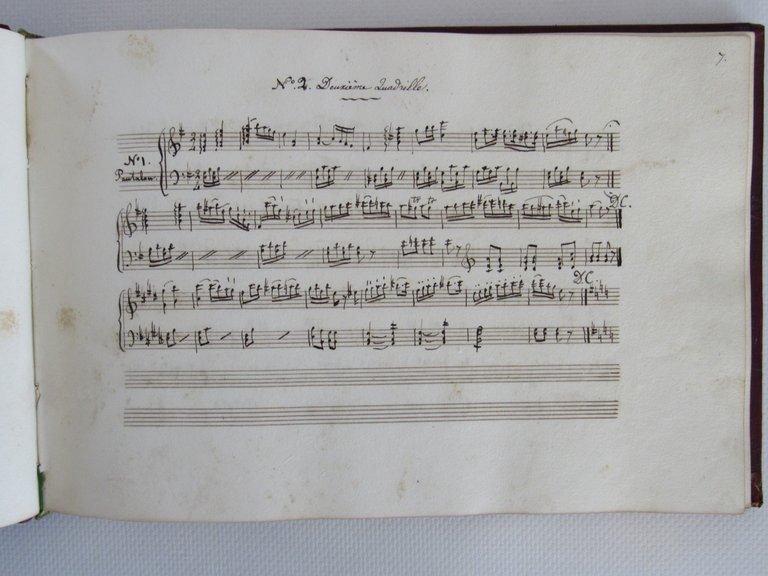 7.
No. 2. Deuxième Quadrille.
No 1.
Pantalon.
DC.
DC